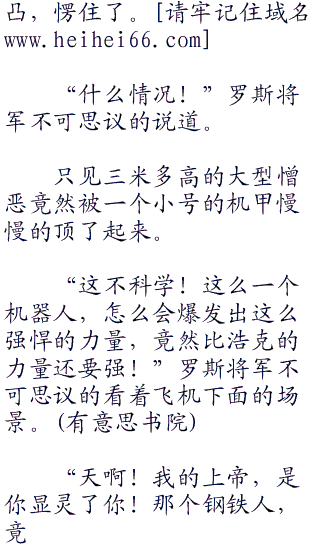 凸，愣住了。[请牢记住域名
www.heihei66.com]
“什么情况！”罗斯将
军不可思议的说道。
只见三米多高的大型憎
恶竟然被一个小号的机甲慢
慢的顶了起来。
“这不科学！这么一个
机器人，怎么会爆发出这么
强悍的力量，竟然比浩克的
力量还要强！”罗斯将军不
可思议的看着飞机下面的场
景。(有意思书院)
“天啊！我的上帝，是
你显灵了你！那个钢铁人，
竟